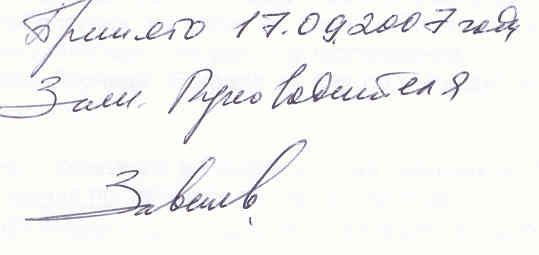 Принято 17.09.2007 году
Зам. Руководителя